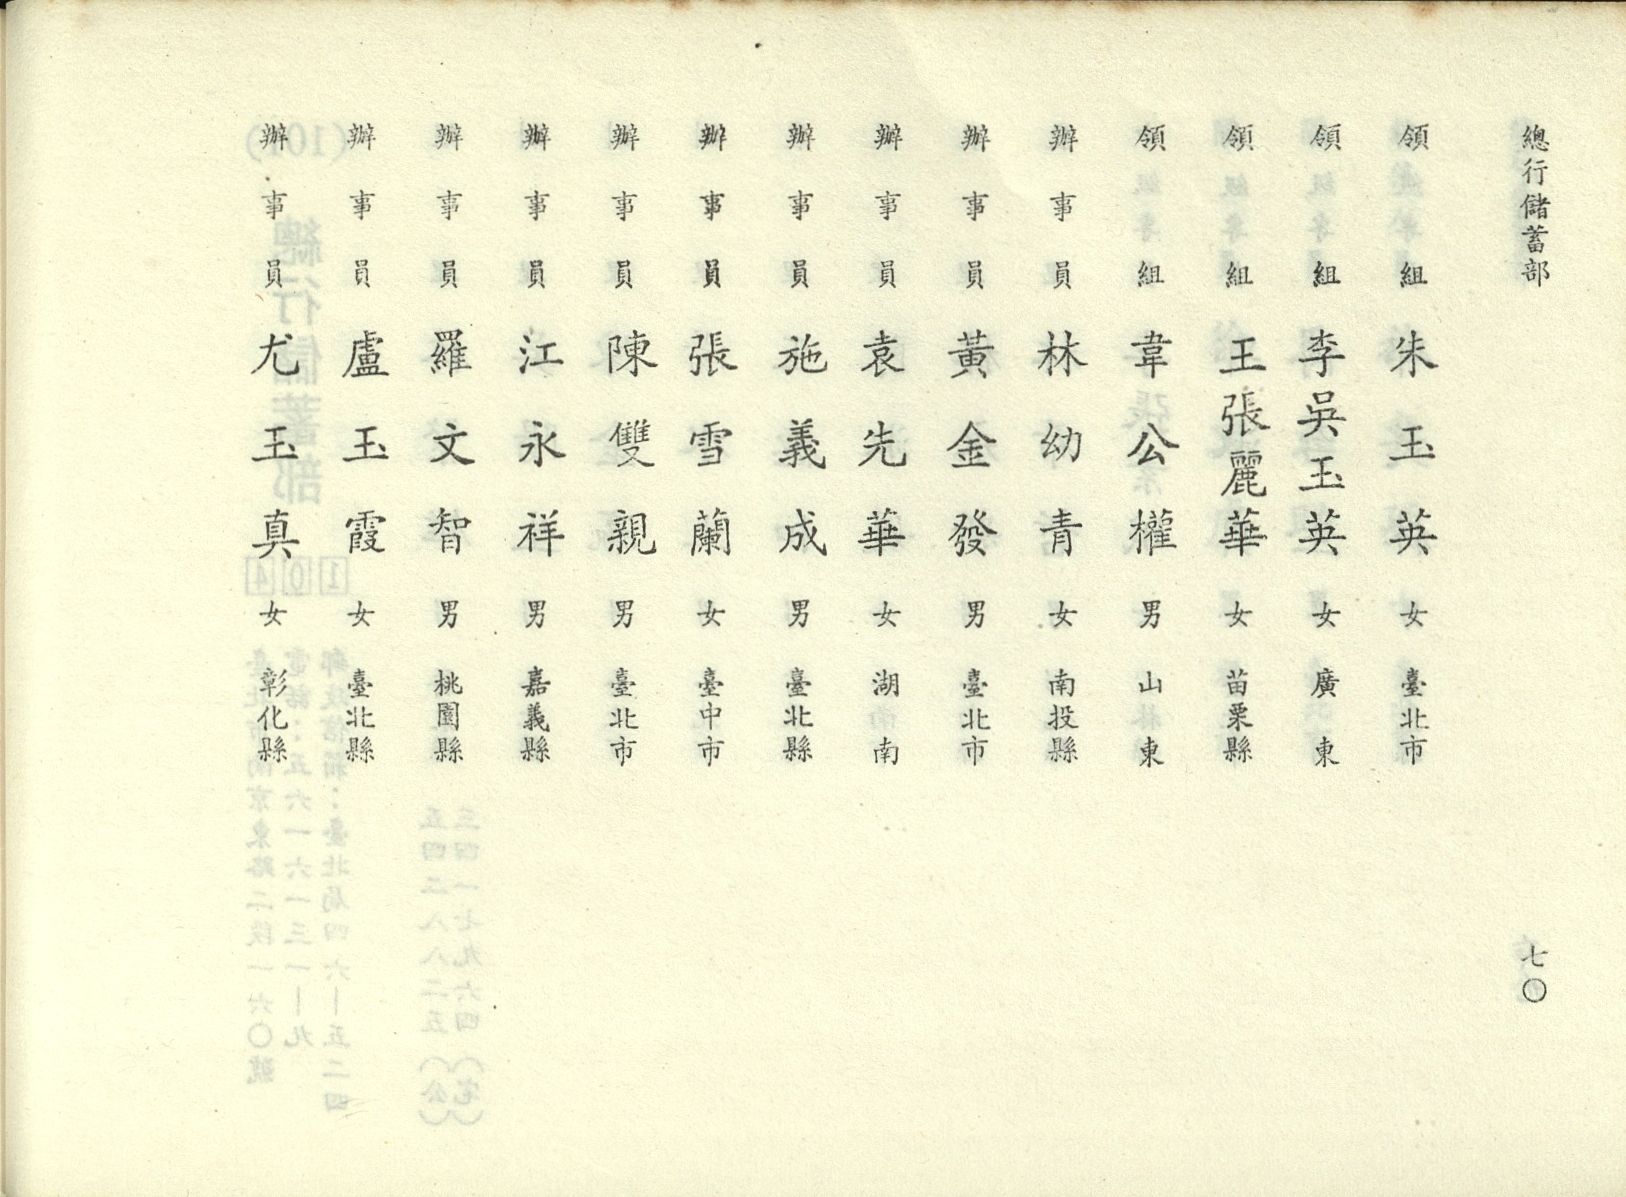 總行儲蓄部 七〇
領組 朱玉英 女 臺北市
領組 李吳玉英 女 廣東
領組 王張麗華 女 苗栗縣
領組 韋公權 男 山東
辦事員 林幼青 女 南投縣
辦事員 黃金發 男 臺北市
辦事員 袁先華 女 湖南
辦事員 施義成 男 臺北縣
辦事員 張雪蘭 女 臺中市
辦事員 陳雙親 男 臺北市
辦事員 江永祥 男 嘉義縣
辦事員 羅文智 男 桃園縣
辦事員 盧玉霞 女 臺北縣
辦事員 尤玉真 女 彰化縣